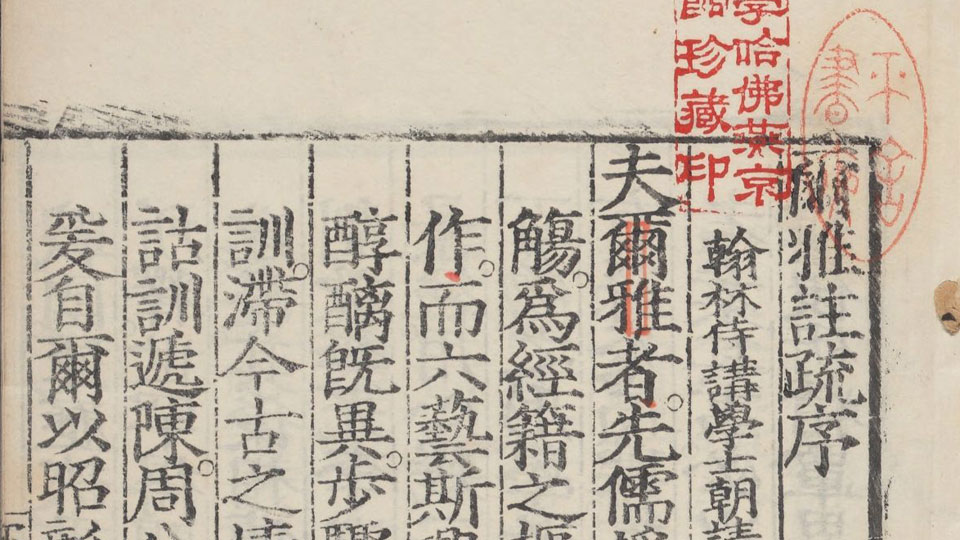 爾雅註疏序
翰林侍講學士朝請
夫爾雅者。先儒
觴。爲經籍之樞
作。而六藝斯
醇醨旣異。步驟
訓。滯今古之情
詁訓遞陳。周公
爰自爾以昭彰
學哈佛燕京
館珍藏印